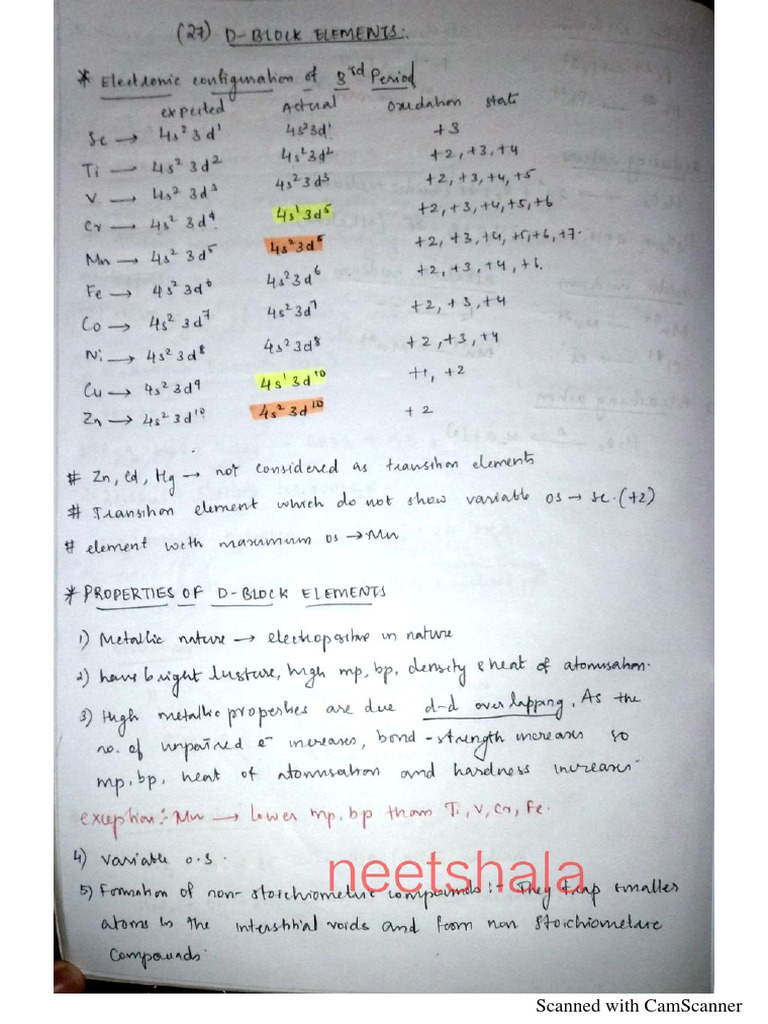 (27) D-BLOCK ELEMENTS:
* Electronic configuration of 3rd Period
expected Actual oxidation state
Sc → 4s² 3d¹ 4s²3d¹ +3
Ti → 4s² 3d² 4s²3d² +2, +3, +4
V → 4s² 3d³ 4s²3d³ +2, +3, +4, +5
Cr → 4s² 3d⁴ 4s¹3d⁵ +2, +3, +4, +5, +6
Mn → 4s² 3d⁵ 4s²3d⁵ +2, +3, +4, +5, +6, +7.
Fe → 4s² 3d⁶ 4s²3d⁶ +2, +3, +4, +6.
Co → 4s² 3d⁷ 4s²3d⁷ +2, +3, +4
Ni → 4s² 3d⁸ 4s²3d⁸ +2, +3, +4
Cu → 4s² 3d⁹ 4s¹3d¹⁰ +1, +2
Zn → 4s² 3d¹⁰ 4s²3d¹⁰ +2
# Zn, Cd, Hg → not considered as transition elements
# Transition element which do not show variable os → Sc. (+2)
# element with maximum os → Mn
* PROPERTIES OF D-BLOCK ELEMENTS
1) Metallic nature → electropositive in nature
2) have bright lusture, high mp, bp, density & heat of atomisation.
3) High metallic properties are due d-d overlapping. As the
no. of unpaired e⁻ increases, bond-strength increases so
mp, bp, heat of atomisation and hardness increases.
exception:- Mn → lower mp, bp than Ti, V, Cr, Fe.
4) Variable o.s.
neetshala
5) Formation of non-stoichiometric compounds :- They trap smaller
atoms in the interstitial voids and form non stoichiometric
compounds.
Scanned with CamScanner